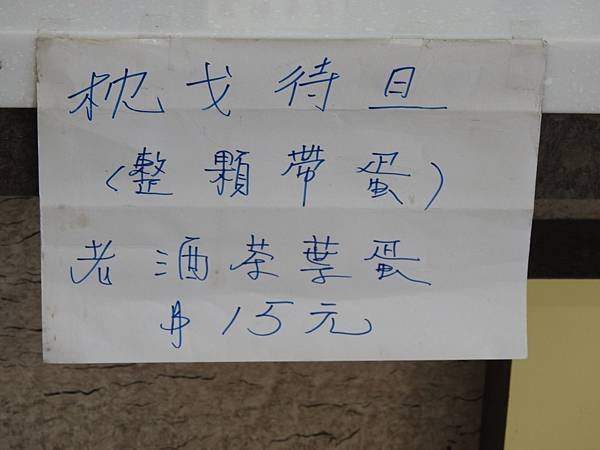 枕戈待旦
(整顆帶蛋)
老酒茶葉蛋
$15元